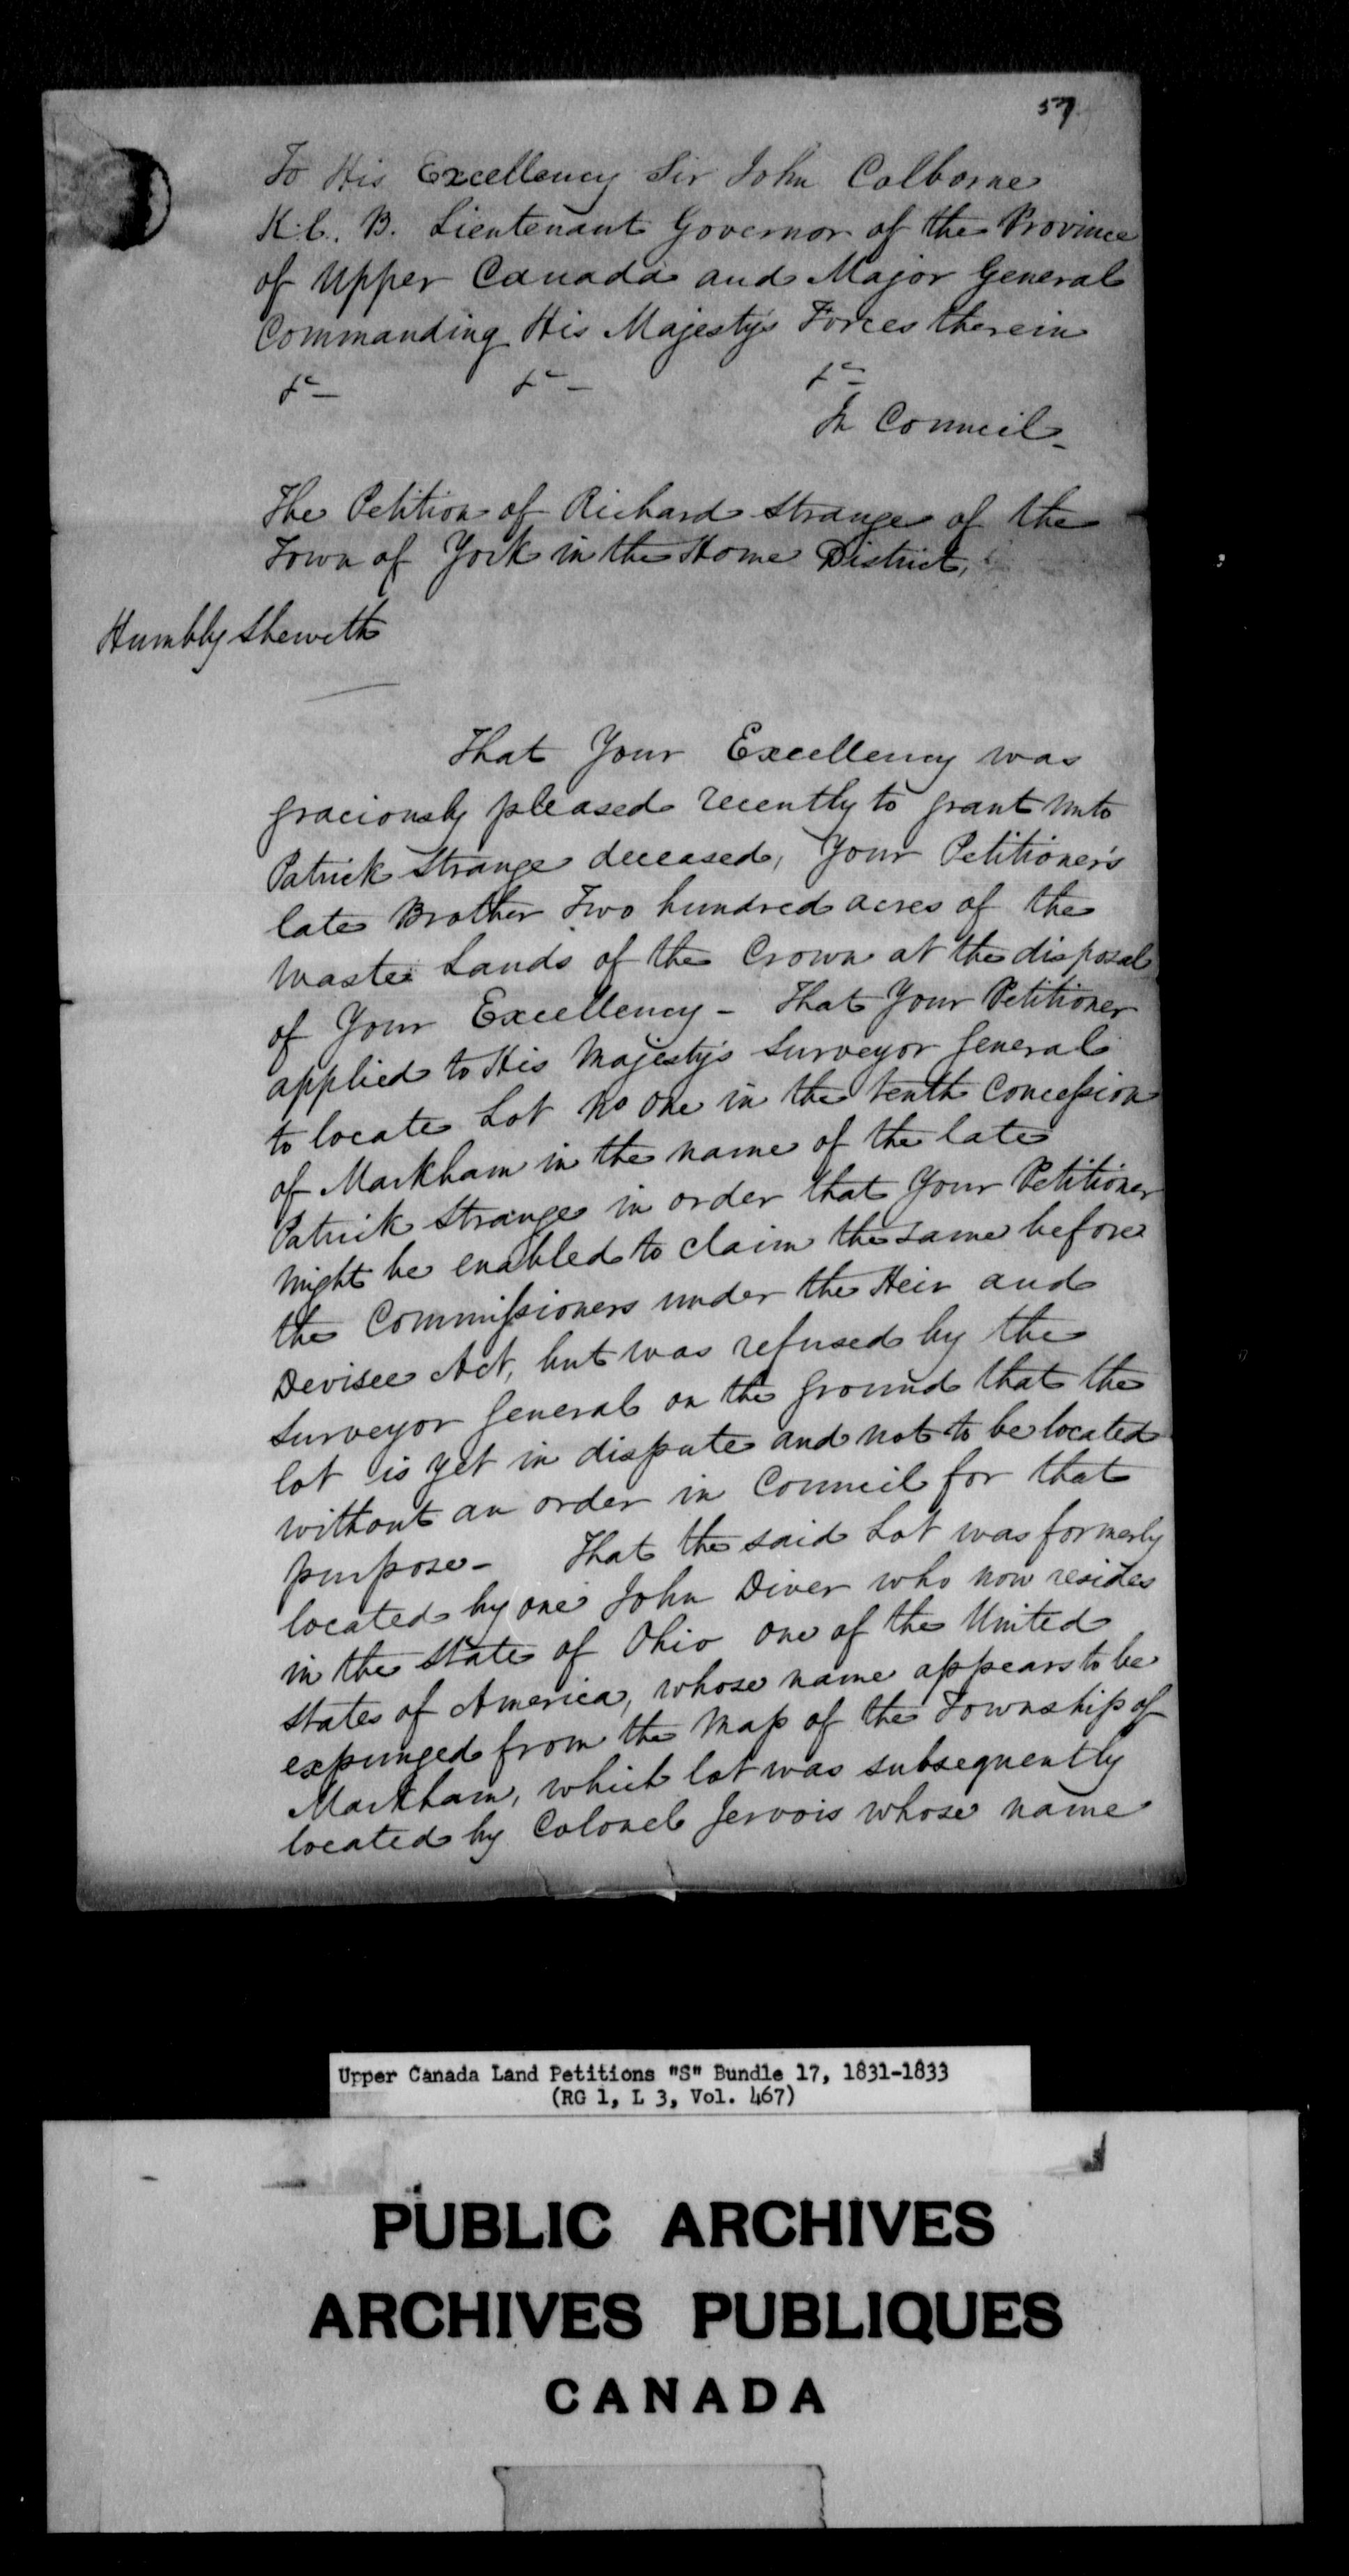 57
To His Excellency Sir John Colborne
K. C. B. Lieutenant Governor of the Province
of Upper Canada and Major General
Commanding His Majesty's Forces therein
&c &c &c
In Council
The Petition of Richard Strange of the
Town of York in the Home District,
Humbly Sheweth
That Your Excellency was
graciously pleased recently to grant unto
Patrick Strange deceased, Your Petitioner's
late Brother Two hundred acres of the
Waste Lands of the Crown at the disposal
of Your Excellency - That Your Petitioner
applied to His Majesty's Surveyor General
to locate Lot No One in the tenth Concession
of Markham in the name of the late
Patrick Strange in order that Your Petitioner
might be enabled to claim the same before
the Commissioners under the Heir and
Devisee Act, but was refused by the
Surveyor General on the ground that the
lot is yet in dispute and not to be located
without an order in Council for that
purpose - That the said Lot was formerly
located by one John Diver who now resides
in the State of Ohio one of the United
States of America, whose name appears to be
expunged from the Map of the Township of
Markham, which lot was subsequently
located by Colonel Jervois whose name
Upper Canada Land Petitions "S" Bundle 17, 1831-1833
(RG 1, L 3, Vol. 467)
PUBLIC ARCHIVES
ARCHIVES PUBLIQUES
CANADA